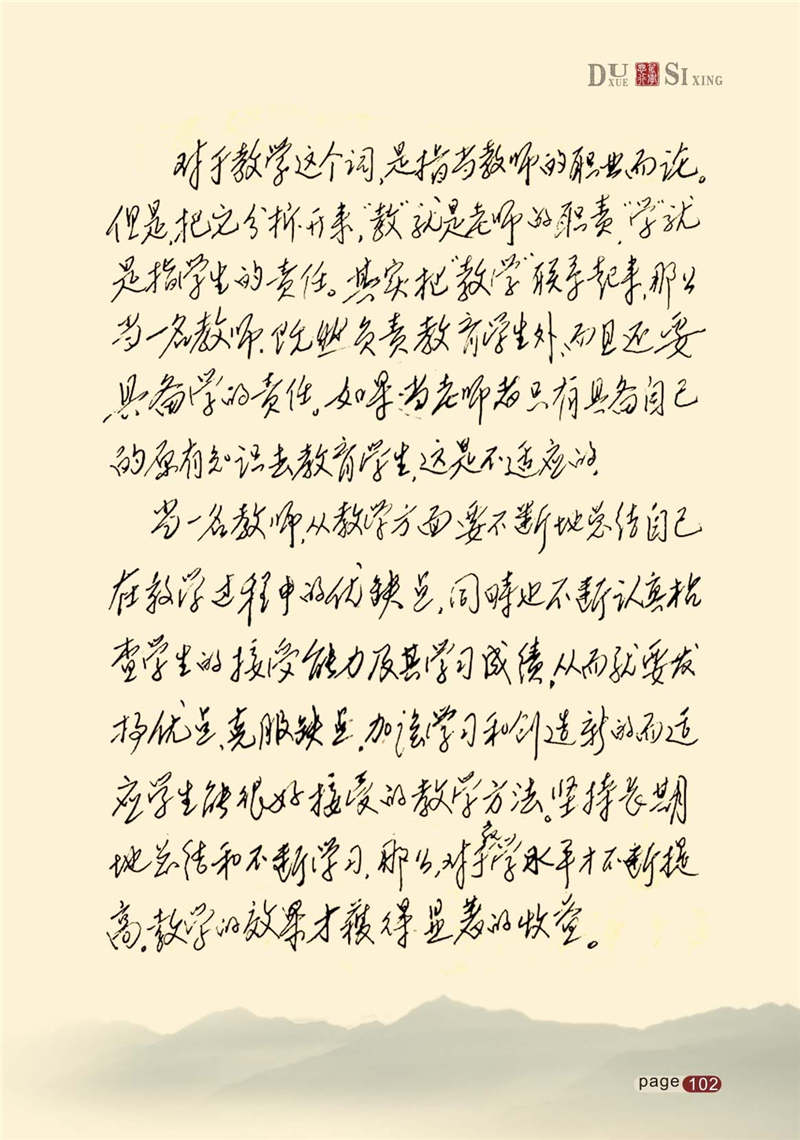 DU XUE SI XING
对于教学这个词,是指当教师的职业而论。
但是,把它分拆开来,“教”就是老师的职责,“学”就
是指学生的责任。其实把“教学”联系起来,那么
当一名教师,既然负责教育学生外,而且还要
具备学的责任。如果当老师者只有具备自己
的原有知识去教育学生,这是不适应的,
当一名教师,从教学方面要不断地总结自己
在教学过程中的优缺点,同時也不断认真检
查学生的接受能力及其学习成绩,从而就要发
扬优点,克服缺点,加强学习和创造新的而适
应学生能很好接受的教学方法。坚持长期
地总结和不断学习,那么,对于教学水平才不断提
高。教学的效果才获得显著的收益。
page 102